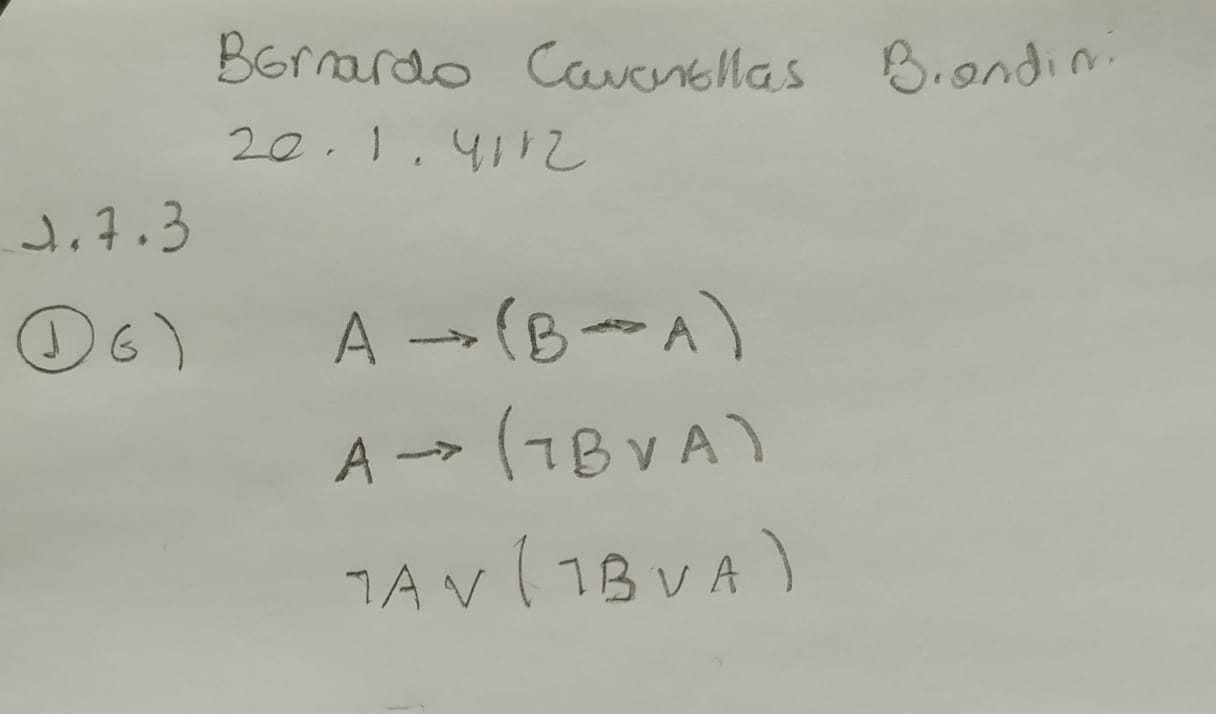 Bernardo Cavanellas Biondini
20.1.4112
1.7.3
① e) A → (B → A)
A → (¬B ∨ A)
¬A ∨ (¬B ∨ A)